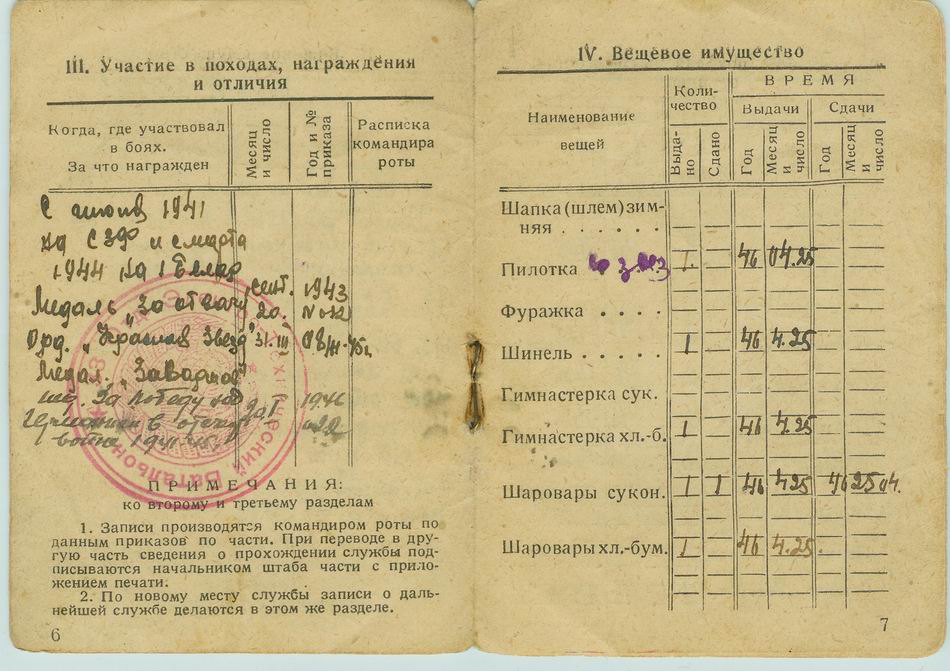 III. Участие в походах, награждения
и отличия
Когда, где участвовал
в боях.
За что награжден
Месяц
и число
Год и №
приказа
Расписка
командира
роты
С июня 1941
на СЗФ и с марта
1944 на 1 Белор
Медаль „За отвагу" сент. 20. 1943
Орд. „Красная Звезд" 31.III
Медал. „За
За победу над
Германией в отеч.
войне 1941-45
ПРИМЕЧАНИЯ:
ко второму и третьему разделам
1. Записи производятся командиром роты по
данным приказов по части. При переводе в дру-
гую часть сведения о прохождении службы под-
писываются начальником штаба части с прило-
жением печати.
2. По новому месту службы записи о даль-
нейшей службе делаются в этом же разделе.
6
IV. Вещевое имущество
Наименование
вещей
Коли-
чество
Выда-
но
Сдано
ВРЕМЯ
Выдачи
Сдачи
Год
Месяц
и
число
Год
Месяц
и
число
Шапка (шлем) зим-
няя . . . . . .
Пилотка со звез 1. 46 04.25
Фуражка . . . .
Шинель . . . . . 1 46 4.25
Гимнастерка сук.
Гимнастерка хл.-б. 1 46 4.25
Шаровары сукон. 1 1 46 4.25 46 25 04.
Шаровары хл.-бум. 1 46 4.25.
7